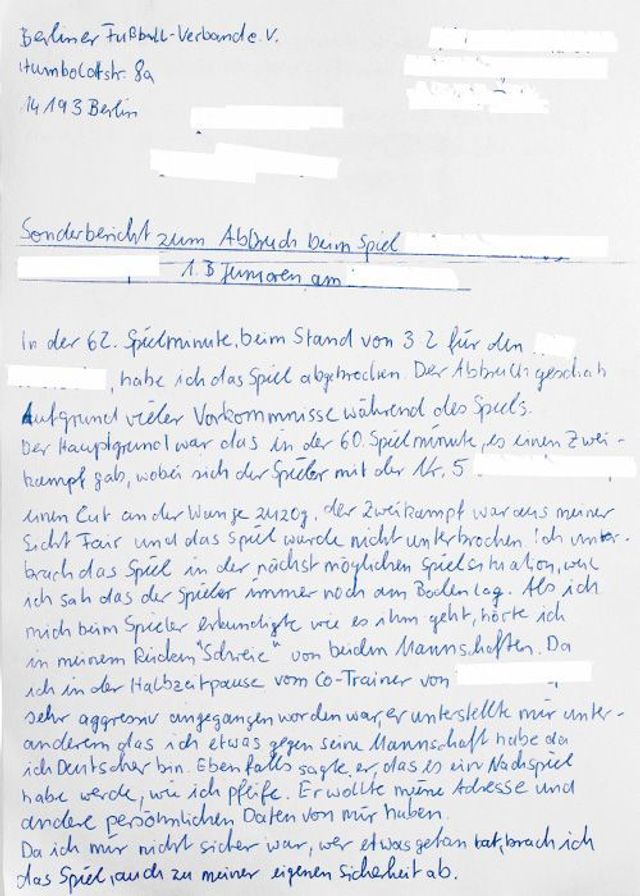 Berliner Fußball-Verband e.V.
Humboldtstr. 8a
14193 Berlin
Sonderbericht zum Abbruch beim Spiel
1. B Junioren am
In der 62. Spielminute, beim Stand von 3:2 für den
, habe ich das Spiel abgebrochen. Der Abbruch geschah
Aufgrund vieler Vorkommnisse während des Spiels.
Der Hauptgrund war das in der 60. Spielminute, es einen Zwei-
kampf gab, wobei sich der Spieler mit der Nr. 5
einen Cut an der Wange zuzog, der Zweikampf war aus meiner
Sicht Fair und das Spiel wurde nicht unterbrochen. Ich unter-
brach das Spiel in der nächst möglichen Spielsituation, weil
ich sah das der Spieler immer noch am Boden lag. Als ich
mich beim Spieler erkundigte wie es ihm geht, hörte ich
in meinem Rücken "Schreie" von beiden Mannschaften. Da
ich in der Halbzeitpause vom Co-Trainer von
sehr aggressiv angegangen worden war, er unterstellte mir unter-
anderem das ich etwas gegen seine Mannschaft habe da
ich Deutscher bin. Ebenfalls sagte er, das es ein Nachspiel
habe werde, wie ich pfeife. Er wollte meine Adresse und
andere persönlichen Daten von mir haben.
Da ich mir nicht sicher war, wer etwas getan hat, brach ich
das Spiel, auch zu meiner eigenen Sicherheit ab.